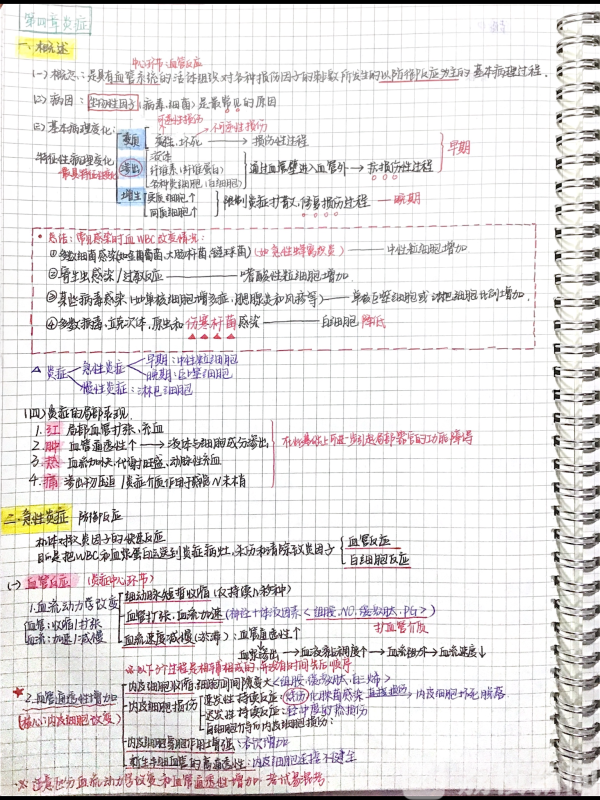 第四章炎症
一.概述
中心环节:血管反应
(一)概念:是具有血管系统的活体组织对各种损伤因子的刺激所发生的以防御反应为主的基本病理过程.
(二)病因:生物性因子(病毒.细菌)是最常见的原因
可逆性损伤
(三)基本病理变化:
不可逆性损伤
变质 变性.坏死 → 损伤性过程
特征性病理变化
渗出 液体
纤维素(纤维蛋白)
各种炎细胞(白细胞)
通过血管壁进入血管外→抗损伤性过程
早期
增生 实质细胞↑
间质细胞↑
限制炎症扩散,修复损伤过程 — 晚期
* 总结:常见感染时血WBC改变情况:
①多数细菌感染(如金葡萄菌、大肠杆菌、链球菌)(如急性蜂窝炎) —— 中性粒细胞增加
②寄生虫感染/过敏反应 —— 嗜酸性粒细胞增加
③某些病毒感染(如单核细胞增多症,腮腺炎和风疹等) —— 单核巨噬细胞或淋巴细胞比例增加.
④多数病毒,立克次体,原虫和伤寒杆菌感染 —— 白细胞降低
△ 炎症
急性炎症
早期:中性粒细胞
晚期:巨噬细胞
慢性炎症:淋巴细胞
(四)炎症的局部表现
1.红 局部血管扩张、充血
2.肿 血管通透性↑→液体与细胞成分渗出
3.热 血流加快,代谢旺盛,动脉性充血
4.痛 渗出物压迫/炎症介质作用于感觉N末梢
在此基础上可进一步引起局部器官的功能障碍
二.急性炎症 防御反应
机体对致炎因子的快速反应
目的是把WBC和血浆蛋白运送到炎症病灶,杀伤和清除致炎因子
血管反应
白细胞反应
(一)血管反应 (炎症中心环节)
1.血流动力学改变
血管:收缩/扩张
血流:加速/减慢
细动脉短暂收缩(仅持续几秒钟)
血管扩张,血流加速(神经+体液因素<组胺.NO.缓激肽.PG>)
扩血管介质
血流速度减慢(淤滞):血管通透性↑
血浆渗出→血液黏稠度↑→血流阻力↑→血流速度↓
※以下4个过程是相辅相成的,并没有时间先后顺序
★2.血管通透性增加
(核心:内皮细胞改变)
内皮细胞收缩:细胞间间隙变大<组胺.缓激肽.白三烯>
内皮细胞损伤
速发性持续反应:烧伤/化脓菌感染直接损伤→内皮细胞坏死脱落
迟发性持续反应:轻中度的热损伤
白细胞介导的内皮细胞损伤:
内皮细胞穿胞作用增强:本次增加
新生毛细血管的高通透性:内皮细胞连接不健全
※注意区分血流动力学改变和血管通透性增加.考试易错考